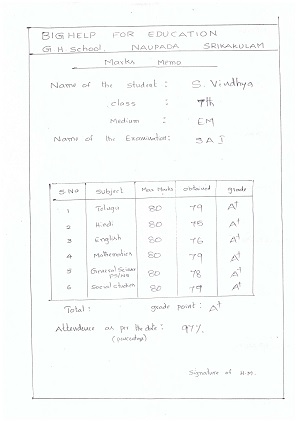 BIGHELP FOR EDUCATION
G H School, NAUPADA SRIKAKULAM
Marks Memo
Name of the student : S. Vindhya
class : 7th
Medium : EM
Name of the Examination: SA I
S.No Subject Max Marks obtained grade
1 Telugu 80 79 A+
2 Hindi 80 75 A+
3 English 80 76 A+
4 Mathematics 80 79 A+
5 General Science PS/NS 80 78 A+
6 Social studies 80 79 A+
Total : grade point : A+
Attendence as per the date : 97%
Signature of H.M.